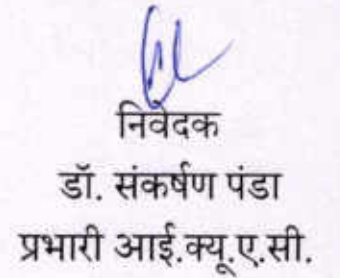 निवेदक
डॉ. संकर्षण पंडा
प्रभारी आई.क्यू.ए.सी.